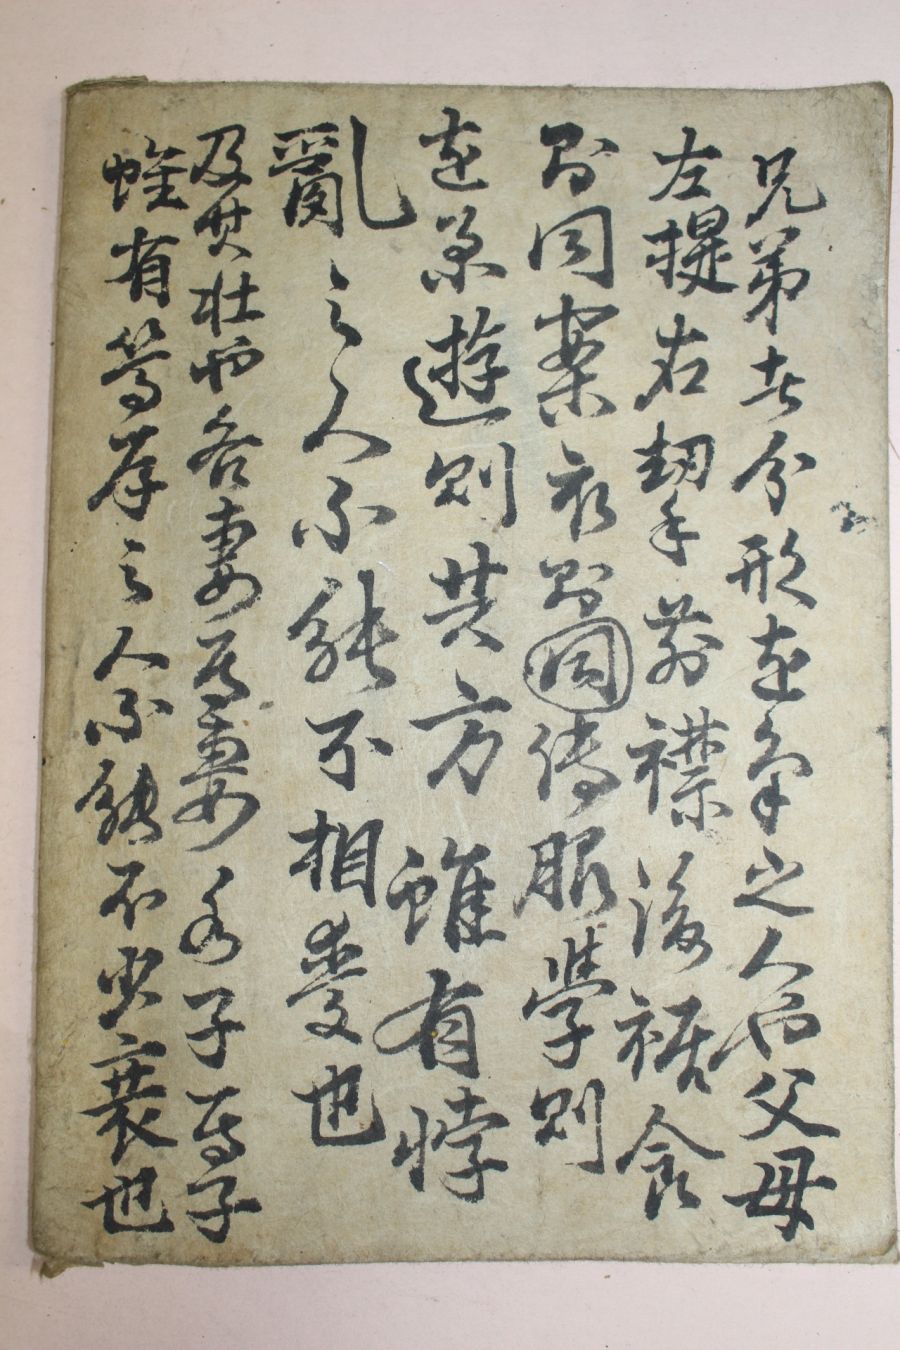 兄弟者分形連氣之人也父母
左提右挈前襟後裾食
則同案衣則同傳服學則
連業遊則共方雖有悖
亂之人不能不相愛也
及其壯也各妻爲妻各子爲子
雖有篤厚之人不能不少衰也